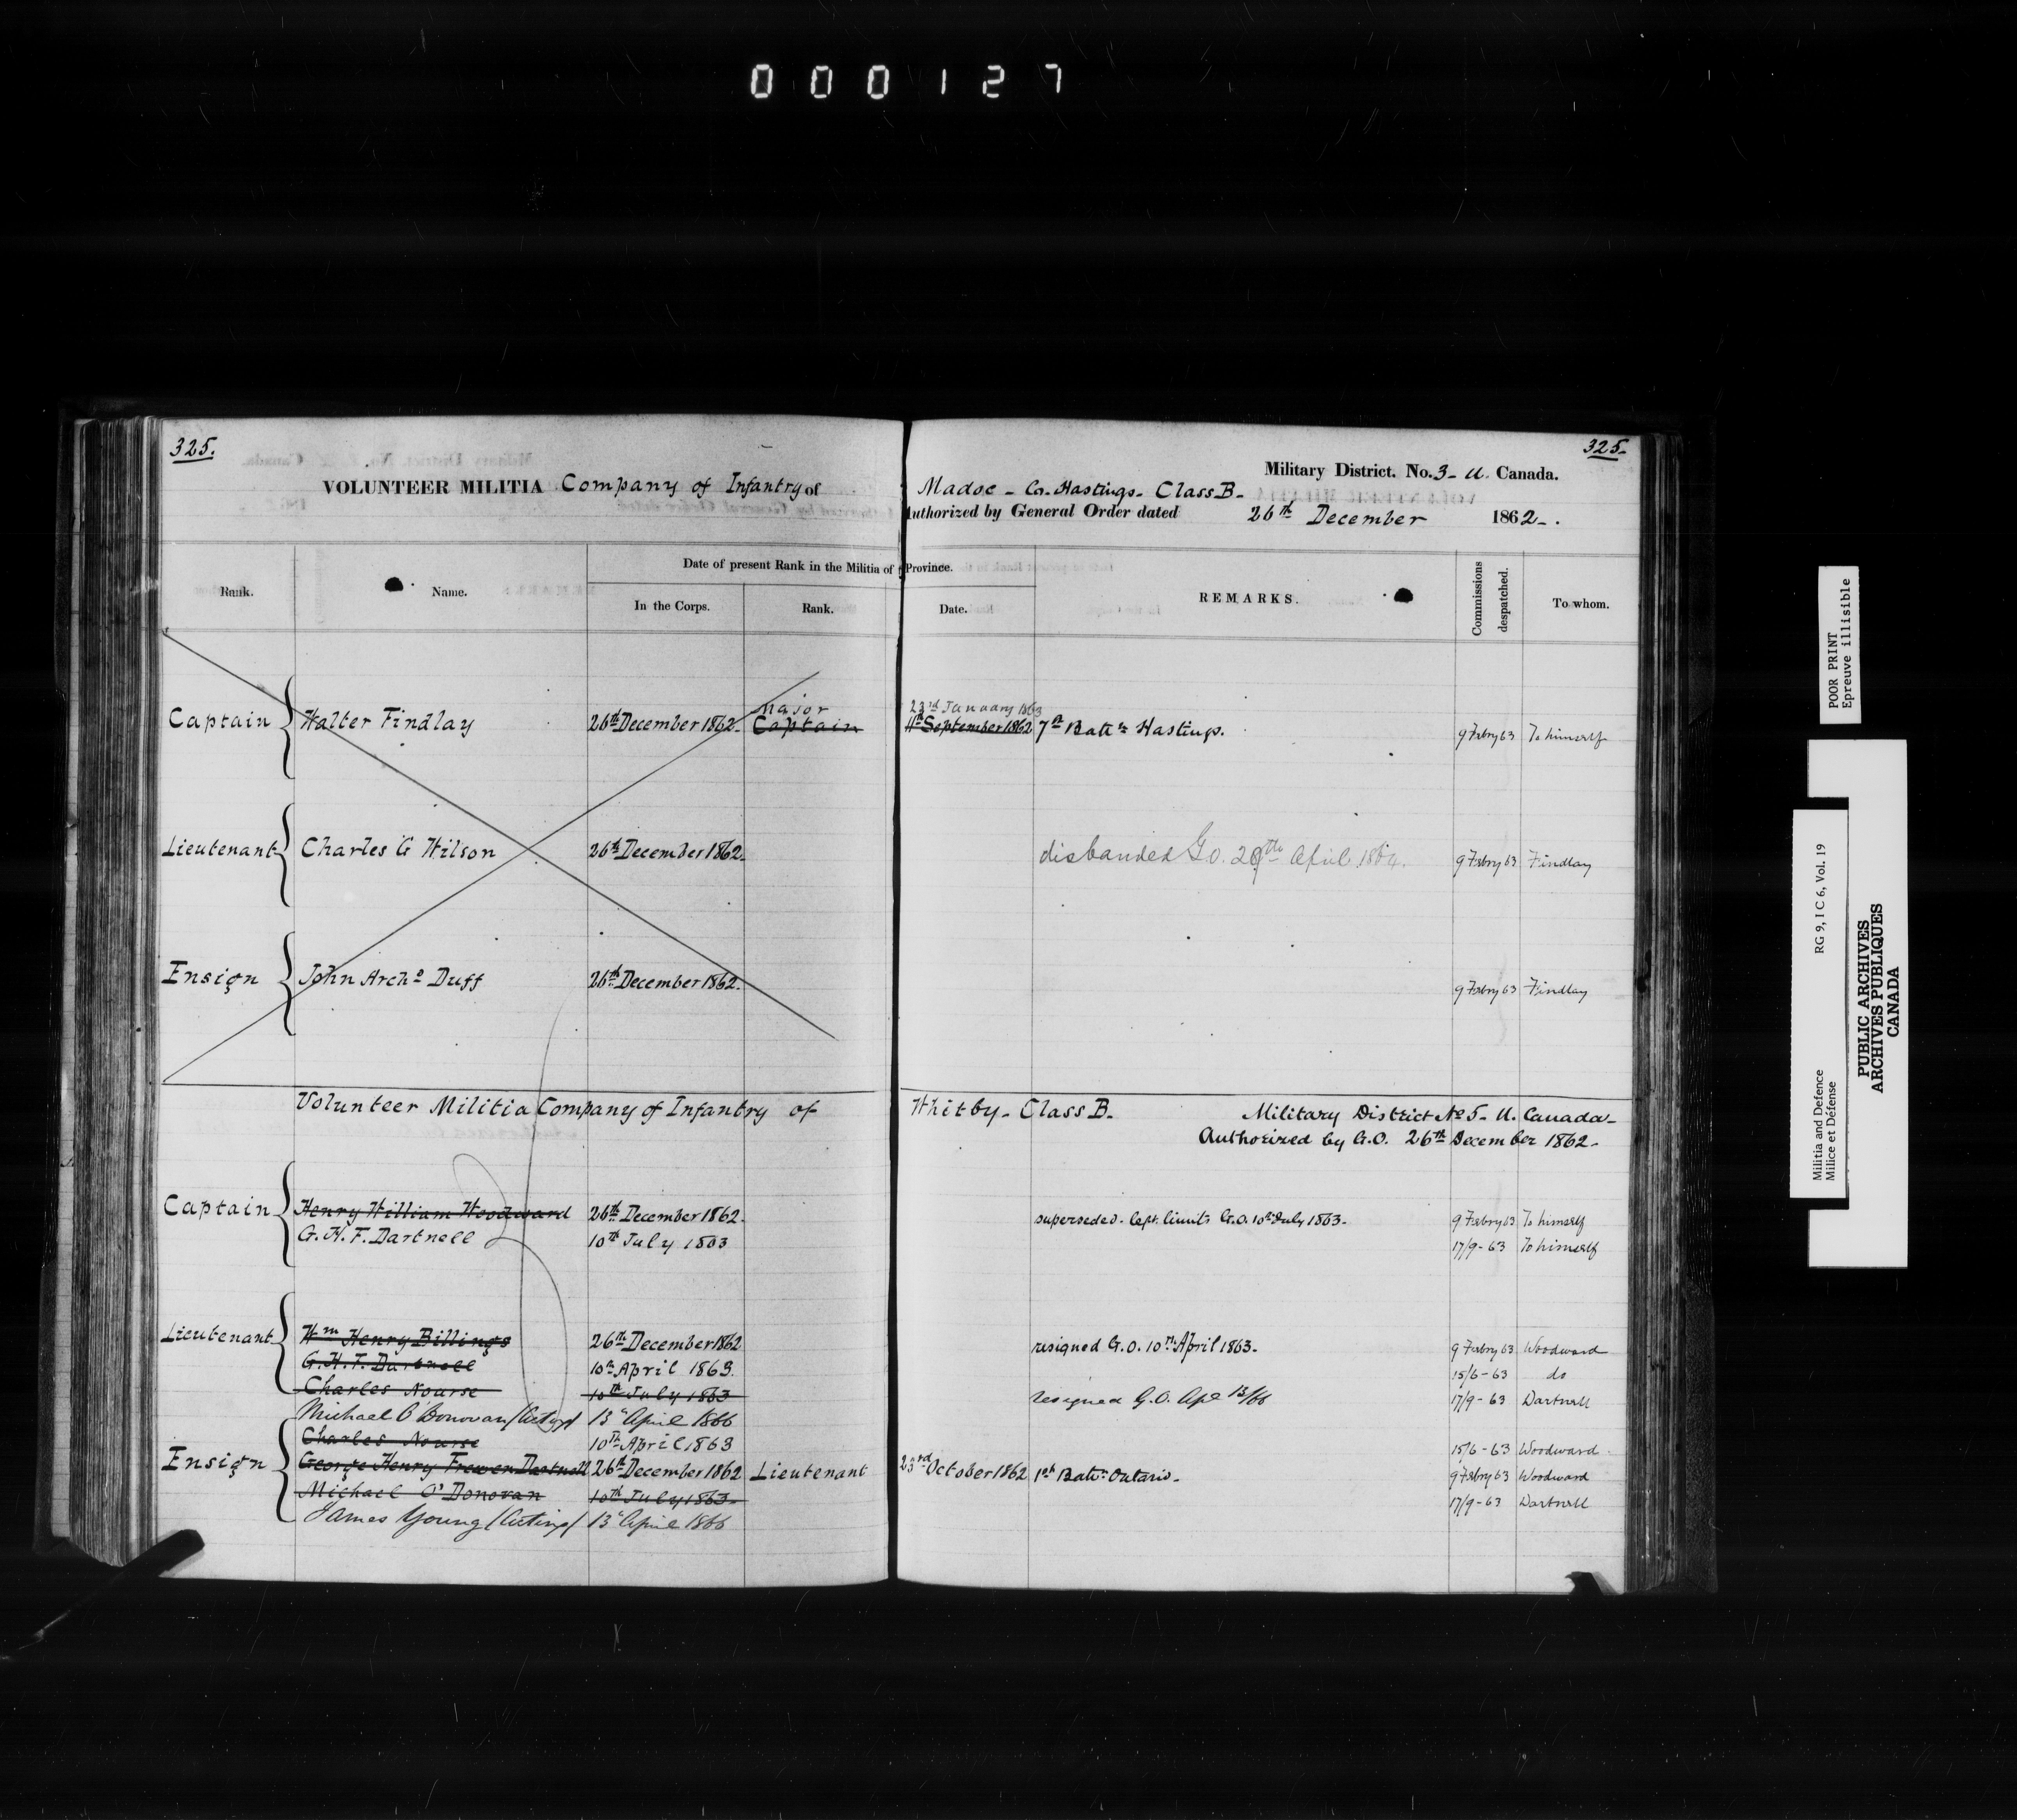 000127
325.
325-
Military District. No. 3- U. Canada.
VOLUNTEER MILITIA Company of Infantry of Madoc - Co. Hastings - Class B-
Authorized by General Order dated 26th December 1862-.
Date of present Rank in the Militia of Province.
Rank. Name. In the Corps. Rank. Date. REMARKS. Commissions despatched. To whom.
Major 23rd January 1863
Captain Walter Findlay 26th December 1862- Captain 11th September 1862 7th Battn Hastings. 9 Febry 63 To himself
Lieutenant Charles G Wilson 26th December 1862. disbanded G.O. 29th April 1864. 9 Febry 63 Findlay
Ensign John Archd Duff 26th December 1862. 9 Febry 63 Findlay
Volunteer Militia Company of Infantry of Whitby- Class B. Military District No 5- U. Canada-
Authorized by G.O. 26th December 1862-
Captain Henry William Woodward 26th December 1862. superseded. left limits G.O. 10th July 1863- 9 Febry 63 To himself
G. H. F. Dartnell 10th July 1863 17/9-63 To himself
Lieutenant Wm Henry Billings 26th December 1862 resigned G.O. 10th April 1863- 9 Febry 63 Woodward
G. H. F. Dartnell 10th April 1863. 15/6-63 do
Charles Nourse 10th July 1863 resigned G.O. Apl 13/66 17/9-63 Dartnell
Michael O'Donovan (Acting) 13" April 1866
Charles Nourse 10th April 1863 15/6-63 Woodward
Ensign George Henry Frewen Dartnell 26th December 1862 Lieutenant 23rd October 1862 1st Battn Ontario- 9 Febry 63 Woodward
Michael O'Donovan 10th July 1863- 17/9-63 Dartnell
James Young (Acting) 13" April 1866
POOR PRINT
Epreuve illisible
RG 9, I C 6, Vol. 19
Militia and Defence
Milice et Défense
PUBLIC ARCHIVES
ARCHIVES PUBLIQUES
CANADA